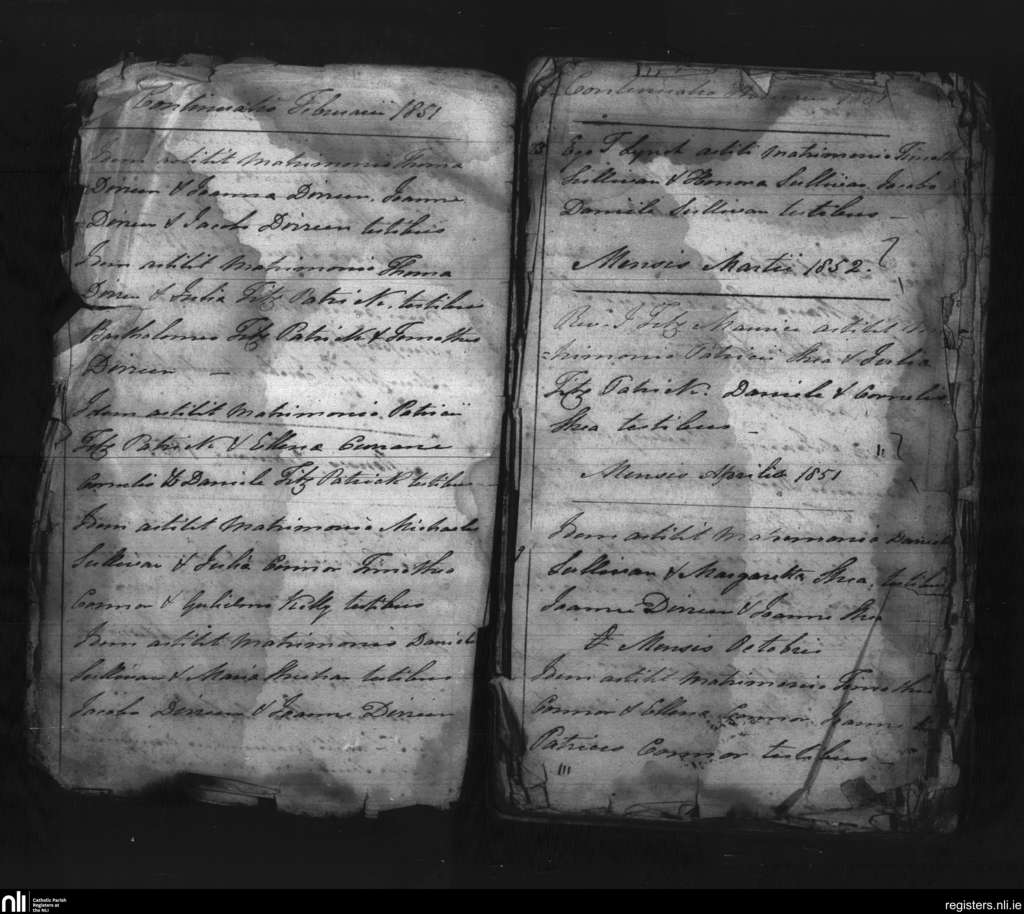 Continuatio Februarii 1851
Item astitit Matrimonio Thoma
Dorreen & Joanna Dorreen, Joanne
Dorreen & Jacobo Dorreen testibus
Item astitit Matrimonio Thoma
& Julia Fitz Patrick, testibus
Bartholomeo Fitz Patrick & Timotheo
Dorreen —
Idem astitit Matrimonio Patricii
Fitz Patrick & Ellena
Cornelio & Daniele Fitz Patrick testibus
Item astitit Matrimonio Michaele
Sullivan & Julia Connor Timotheo
Connor & Gulielmo Kelly testibus
Item astitit Matrimonio Daniele
Sullivan & Maria testibus
Jacobo Dorreen & Joanne Dorreen
Continuatio
Ego T Lynch astiti Matrimonio
Sullivan & Honora Sullivan, Jacobo
Daniele Sullivan testibus —
Mensis Martii 1852.
Rev. J Fitz Maurice astitit Ma-
-trimonio Patricii Shea & Julia
Fitz Patrick. Daniele & Cornelio
Shea testibus —
Mensis Aprilis 1851
Item astitit Matrimonio Daniele
Sullivan & Margaretta Shea, testibus
Joanne Dorreen & Joanne Shea
& Mensis Octobris
Item astitit Matrimonio Timotheo
Connor & Ellena Connor, Joanne &
Patricio Connor testibus —
nli
Catholic Parish
Registers at
the NLI
registers.nli.ie